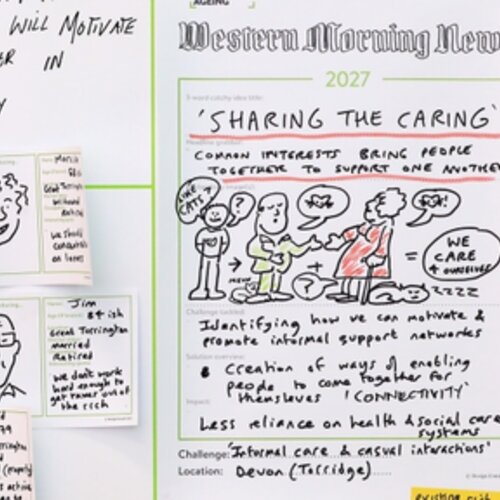 WILL MOTIVATE
IN
AGEING
Western Morning New
2027
3-word catchy idea title:
'SHARING THE CARING'
COMMON INTERESTS BRING PEOPLE
TOGETHER TO SUPPORT ONE ANOTHE
LIKE
CATS?
?
!
MEW
+
=
WE
CARE
4 OURSELVES
ZZZZ
Challenge tackled:
Identifying how we can motivate &
promote informal support networks
Solution overview:
CREATION OF WAYS OF ENABLING
PEOPLE TO COME TOGETHER FOR
THEMSLEVES 'CONNECTIVITY'
Impact:
Less reliance on health & social care
systems
Challenge: 'Informal care & casual interactions'
Location: Devon (Torridge)
Great Torrington
we should
concentrate
on
Jim
84 ish
Great Torrington
married
Retired
we don't work
hard enough to
get taxes out of
the rich
79
existing